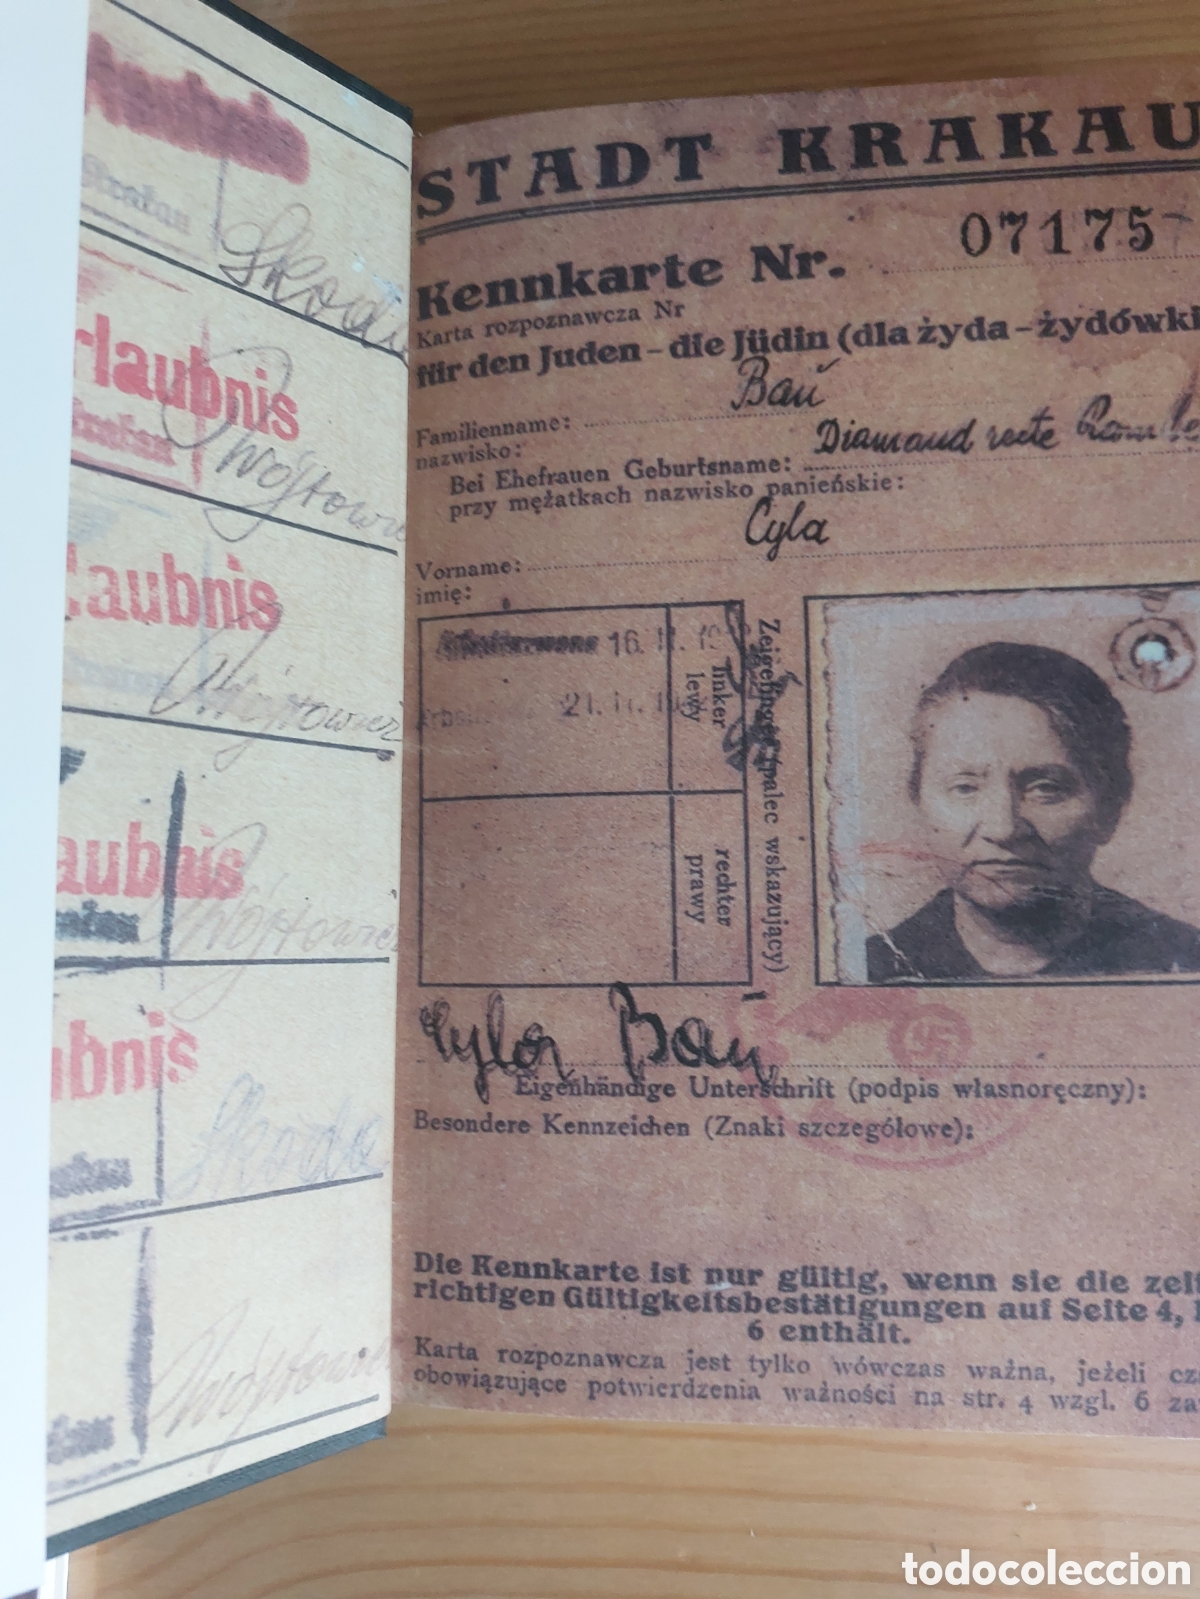 Krakau
Skoda
rlaubnis
Krakau
Wójtowicz
laubnis
Wójtowicz
aubnis
Krakau
Wójtowicz
bnis
Skoda
Wójtowicz
STADT KRAKAU
Kennkarte Nr. 07175
Karta rozpoznawcza Nr
für den Juden – die Jüdin (dla żyda – żydówki
Familienname: Bau
nazwisko:
Bei Ehefrauen Geburtsname: Diamand recte
przy mężatkach nazwisko panieńskie:
Vorname: Cyla
imię:
16. II. 19
21. II. 19
linker
lewy
rechter
prawy
Zeigefinger (palec wskazujący)
Cyla Bau
Eigenhändige Unterschrift (podpis własnoręczny):
Besondere Kennzeichen (Znaki szczegółowe):
Die Kennkarte ist nur gültig, wenn sie die zeit
richtigen Gültigkeitsbestätigungen auf Seite 4,
6 enthält.
Karta rozpoznawcza jest tylko wówczas ważna, jeżeli
obowiązujące potwierdzenia ważności na str. 4 wzgl. 6
todocoleccion